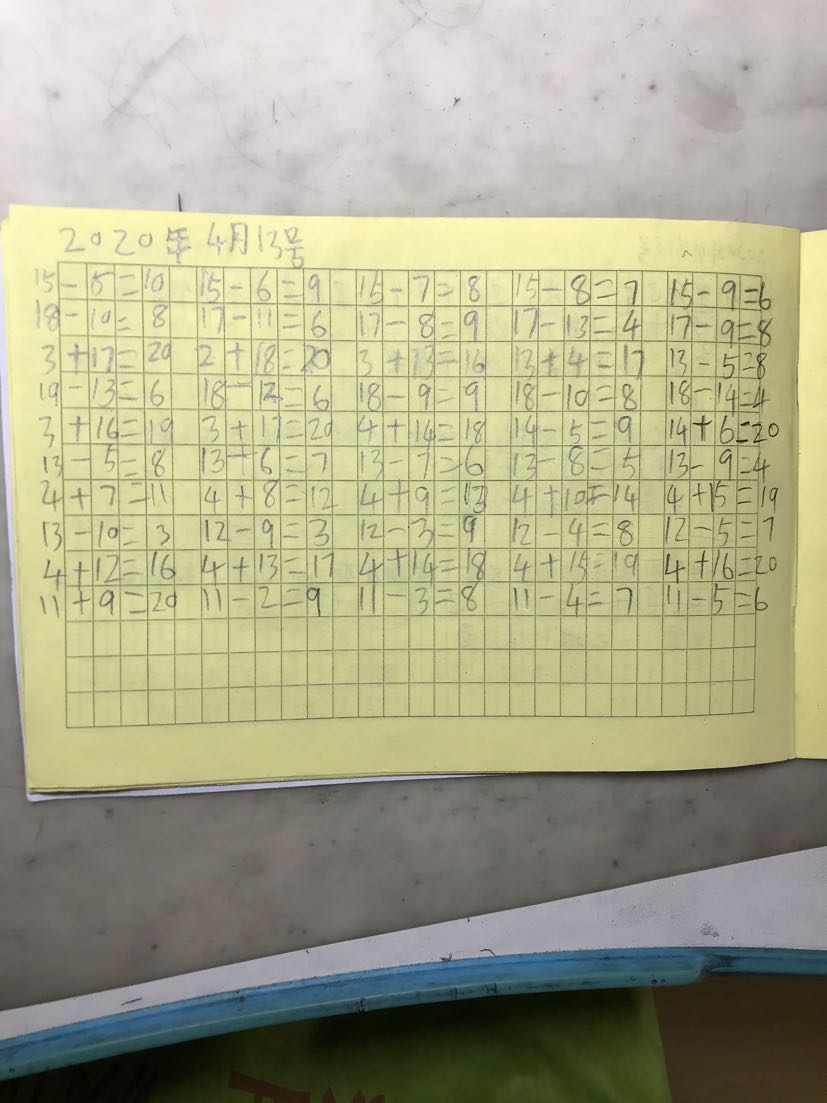 2020年4月13号
15-15=10 15-6=9 15-7=8 15-8=7 15-9=6
18-10=8 17-11=6 17-8=9 17-13=4 17-9=8
3+17=20 2+18=20 3+13=16 13+4=17 13-5=8
19-13=6 18-12=6 18-9=9 18-10=8 18-14=4
3+16=19 3+17=20 4+14=18 14-5=9 14+6=20
13-5=8 13-6=7 13-7=6 13-8=5 13-9=4
4+7=11 4+8=12 4+9=13 4+10=14 4+15=19
13-10=3 12-9=3 12-3=9 12-4=8 12-5=7
4+12=16 4+13=17 4+14=18 4+15=19 4+16=20
11+9=20 11-2=9 11-3=8 11-4=7 11-5=6